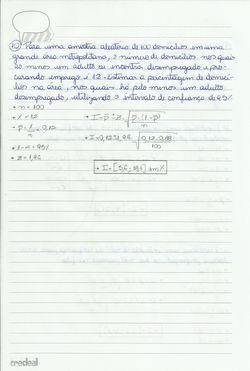 10) Para uma amostra aleatória de 100 domicílios em uma
grande área metropolitana, o número de domicílios nos quais
ao menos um adulto se encontra desempregado e pro-
curando emprego é 12. Estimar a porcentagem de domicí-
lios na área, nos quais há pelo menos um adulto
desempregado, utilizando o intervalo de confiança de 95%
→ n = 100
→ x = 12
→ I = p̂ ± z . √ p̂ . (1 - p̂) / n
→ p̂ = x/n = 0,12
→ I = 0,12 ± 1,96 √ 0,12 . 0,88 / 100
→ 1 - α = 95%
→ z = 1,96
→ I = [5,6 ; 18,4] em %
credeal